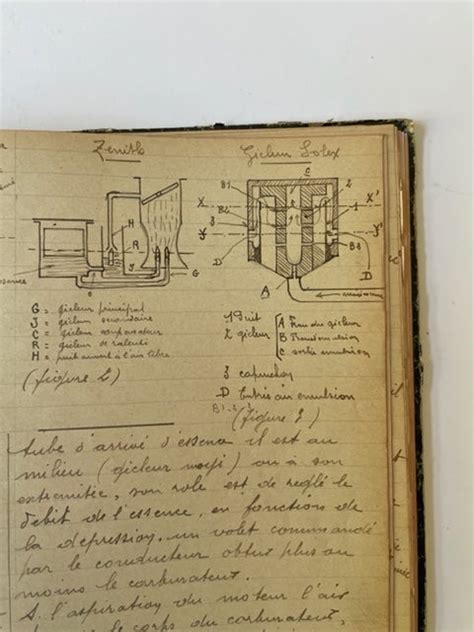 Zenith
Gicleur Solex
H
R
J
G
B1
C
2
X
X'
3
1
B2
Y
Y'
D
B3
D
A
G = gicleur principal
J = gicleur secondaire
C = gicleur compensateur
R = gicleur de ralenti
H = puit ouvert à l'air libre
(figure 2)
1 Puit
2 gicleur
A Trou du gicleur
B Trous emulsion
C sortie emulsion
3 capuchon
D Entrés air emulsion
(figure 3)
tube d'arrivé d'essence il est au
milieu (gicleur noyé) ou a son
extremitée, son role est de reglé le
debit de l'essence, en fonction de
la dépression, un volet commandé
par le conducteur obtue plus ou
moins le carburateur.
A l'aspiration du moteur l'air
le corps du carburateur,